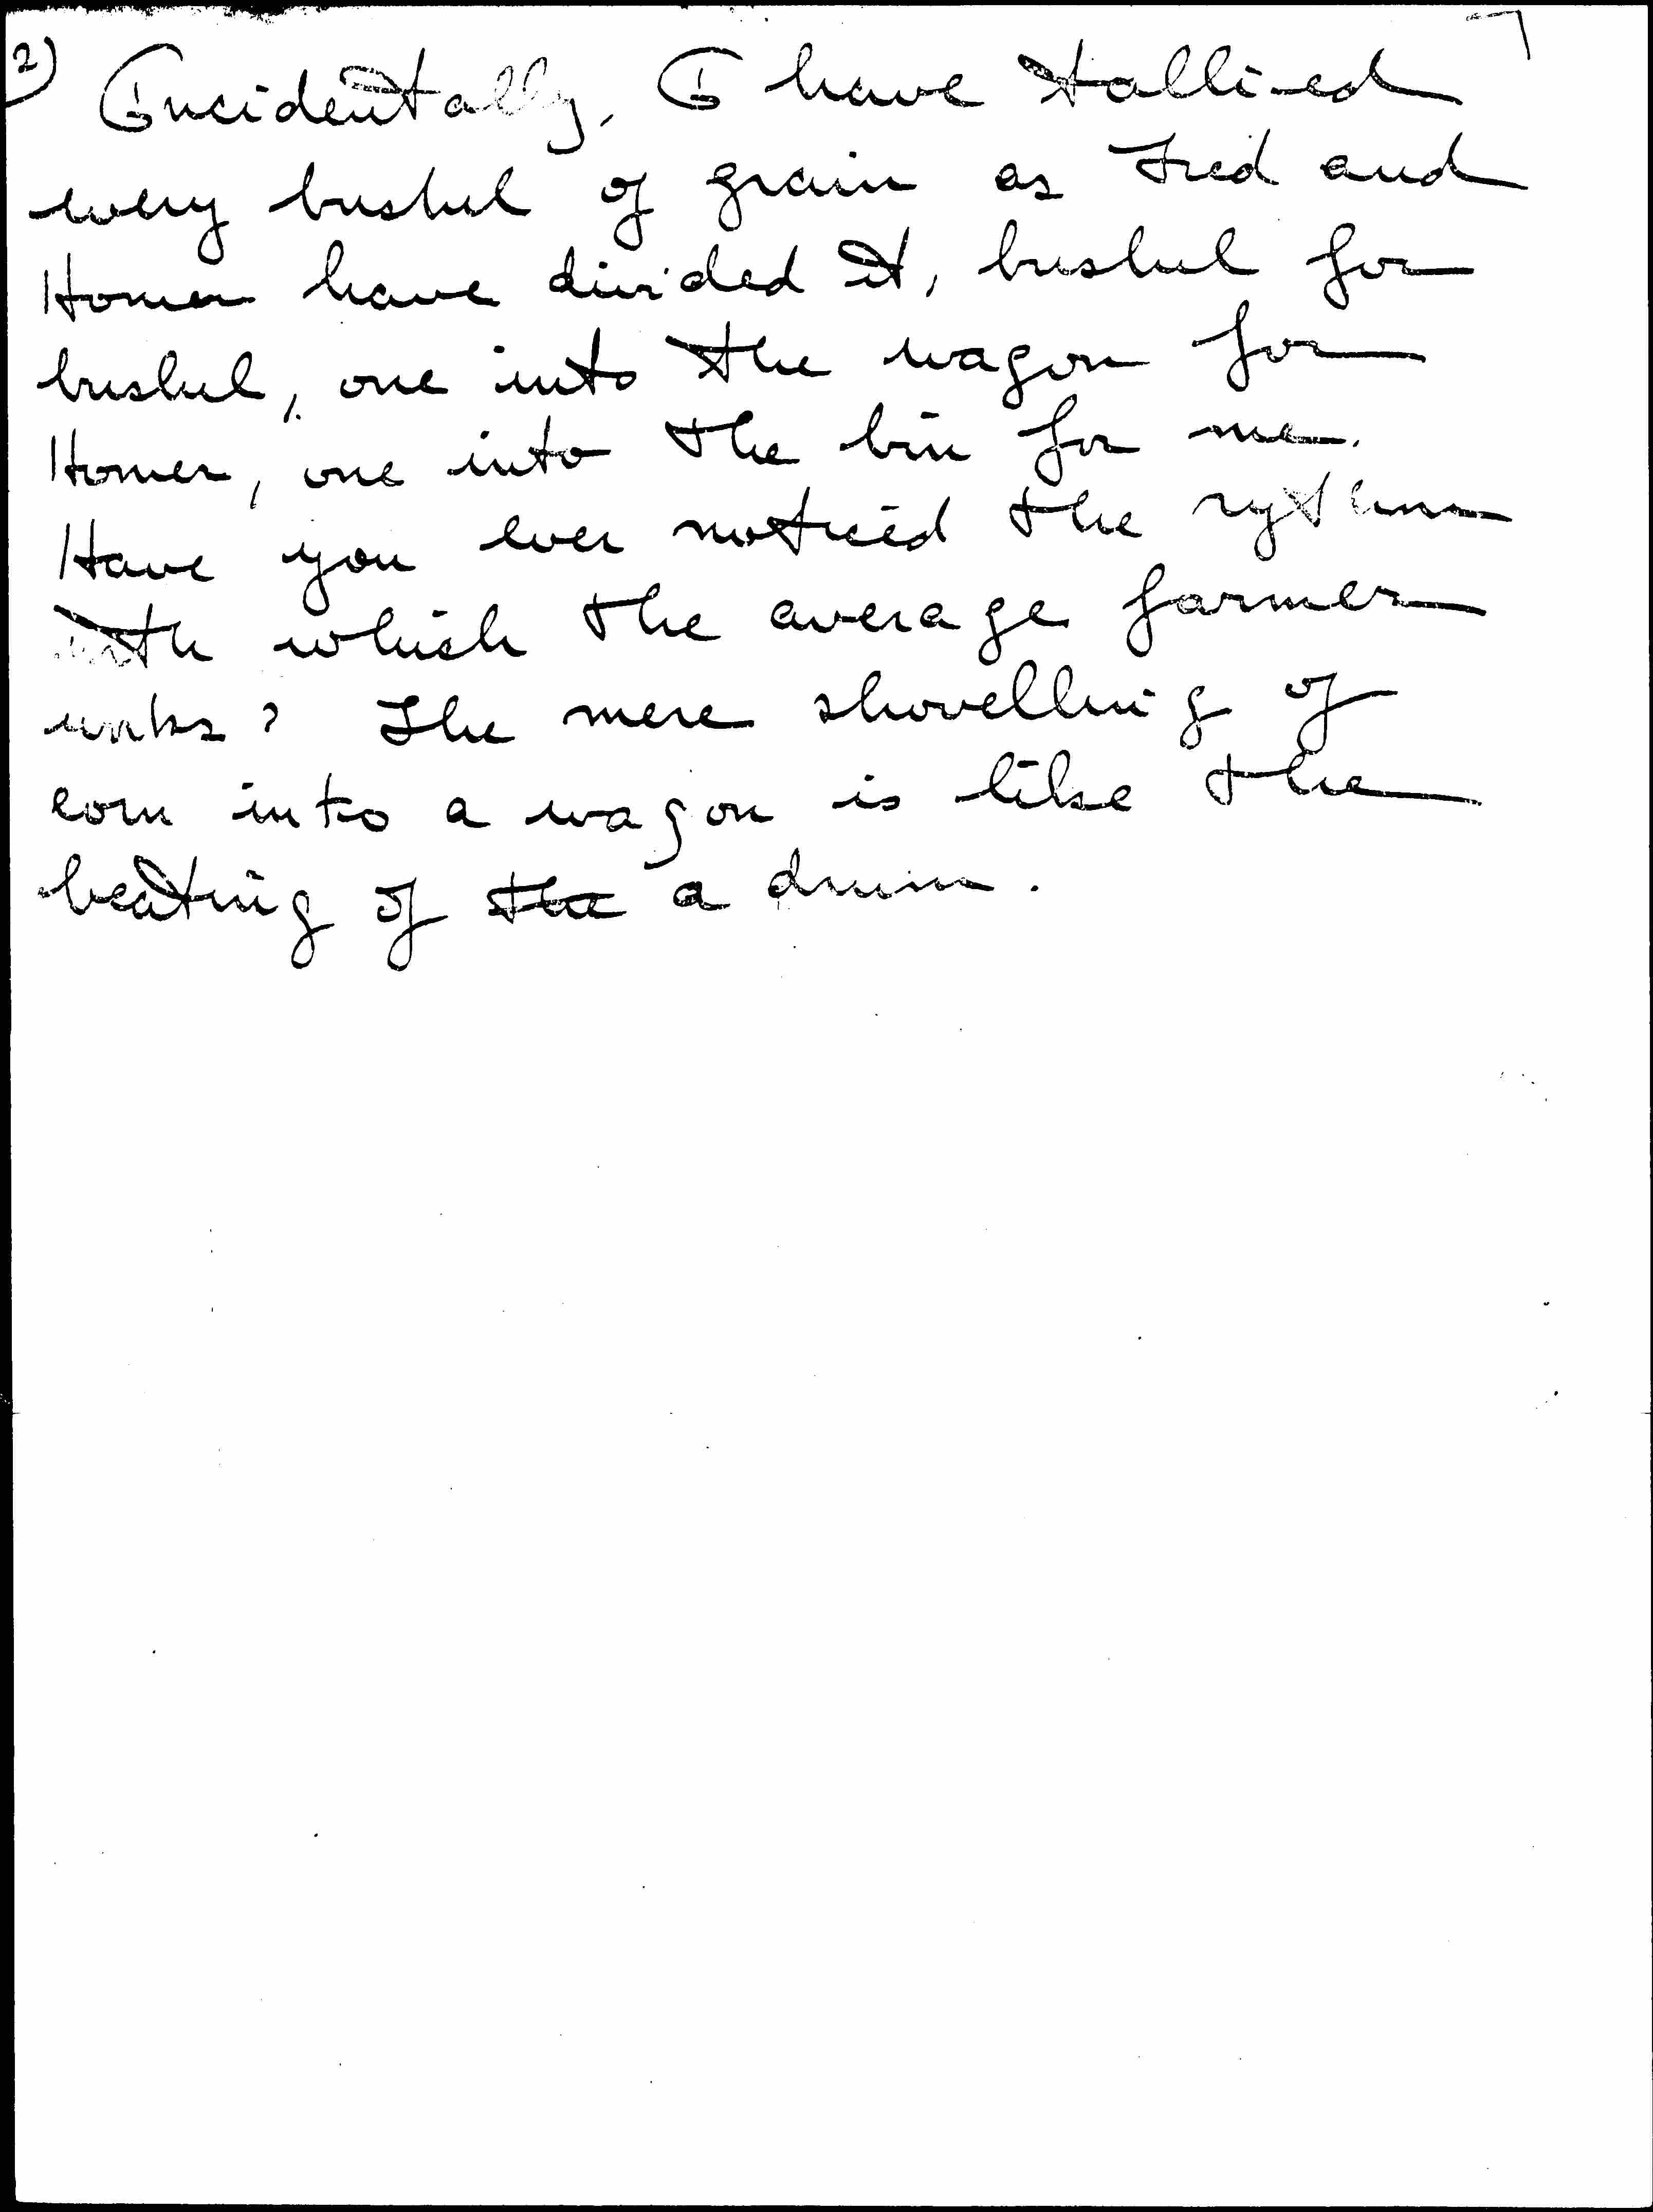 2) Incidentally, I have tallied
every bushel of grain as Fred and
Homer have divided it, bushel for
bushel, one into the wagon for
Homer, one into the bin for me.
Have you ever noticed the rythm
with which the average farmer
works? The mere shovelling of
corn into a wagon is like the
beating of the a drum.